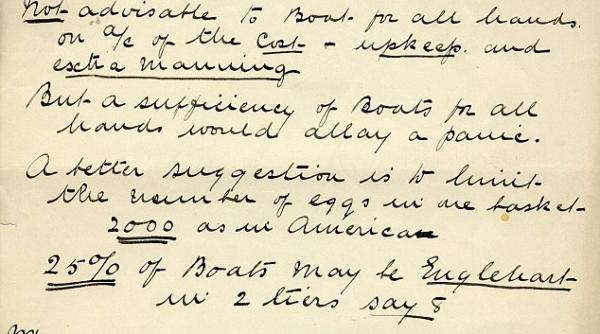 Not advisable to Boat for all hands.
on a/c of the Cost - upkeep. and
extra manning
But a sufficiency of Boats for all
hands would allay a panic.
A better suggestion is to limit
the number of eggs in one basket
2000 as in America
25% of Boats may be Englehart
in 2 tiers say 8